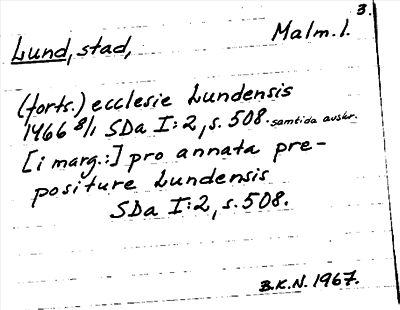 3.
Lund, stad, Malm. l.
(forts.) ecclesie Lundensis
1466 8/1 SDa I:2, s. 508. samtida avskr.
[i marg.:] pro annata pre-
positure Lundensis
SDa I:2, s. 508.
B.K.N. 1967.